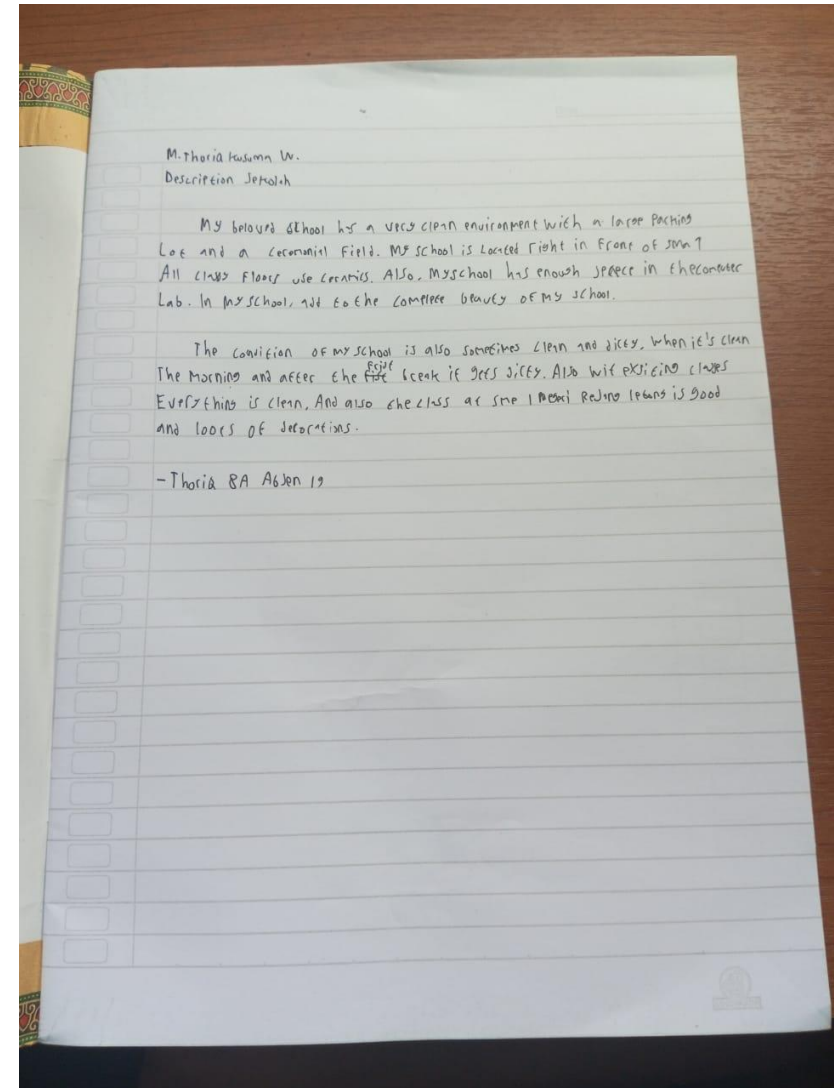 M. Thoriq Kusuma W.
Description Sekolah
My beloved school has a very clean environment with a large Parking
Lot and a ceremonial Field. My school is Located right in Front of sma 7
All class Floors use ceramics. Also, My school has enough space in the computer
Lab. In My school, add to the complete beauty of My school.
The condition of my school is also sometimes clean and dirty, when it's clean
The Morning and after the first break it gets dirty. Also wit existing classes
Everything is clean, And also the class at smp 1 is good
and loots of decorations.
- Thoriq 8A Absen 19